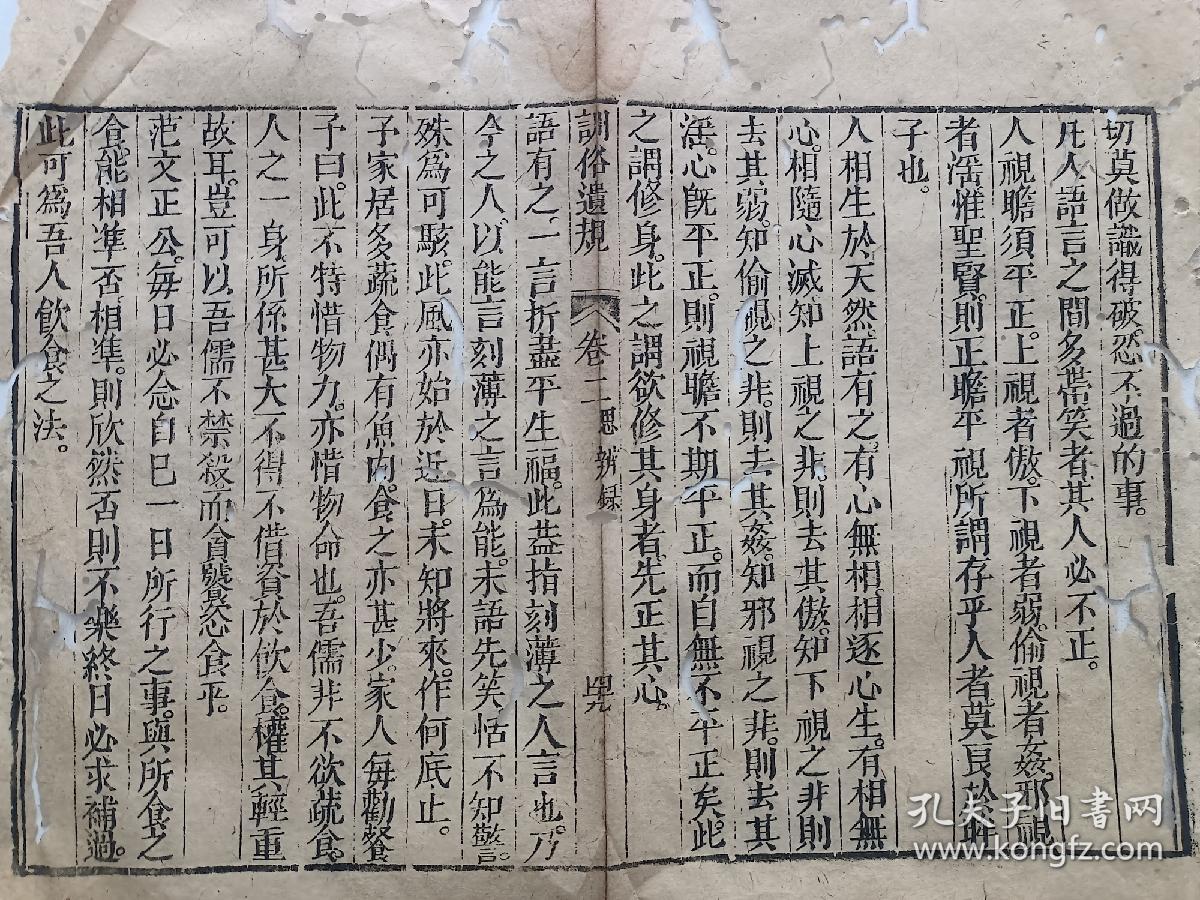 切莫做識得破。忍不過的事。
凡人語言之間多帶笑者其人必不正。
人視瞻須平正。上視者傲。下視者弱。偷視者姦。邪視
者淫。惟聖賢。則正瞻平視所謂存乎人者莫良於眸
子也。
人相生於天然語有之。有心無相。相逐心生。有相無
心。相隨心滅知上視之非。則去其傲。知下視之非則
去其弱。知偷視之非。則去其姦。知邪視之非。則去其
淫。心旣平正。則視瞻不期平正。而自無不平正矣。此
之謂修身。此之謂欲修其身者。先正其心。
訓俗遺規
卷二 思辨録
四九
語有之。一言折盡平生福。此葢指刻薄之人言也。乃
今之人。以能言刻薄之言。爲能。未語先笑恬不知警。
殊爲可駭。此風亦始於近日。未知將來。作何底止。
予家居多蔬食。偶有魚肉。食之亦甚少。家人每勸餐
予曰。此不特惜物力。亦惜物命也。吾儒非不欲蔬食。
人之一身。所係甚大。不得不借資於飲食。權其輕重
故耳。豈可以吾儒不禁殺。而貪饕恣食乎。
范文正公。每日必念自巳一日所行之事。與所食之
食。能相準否。相準。則欣然否則不樂終日必求補過。
此可爲吾人飲食之法。
孔夫子旧書网
www.kongfz.com